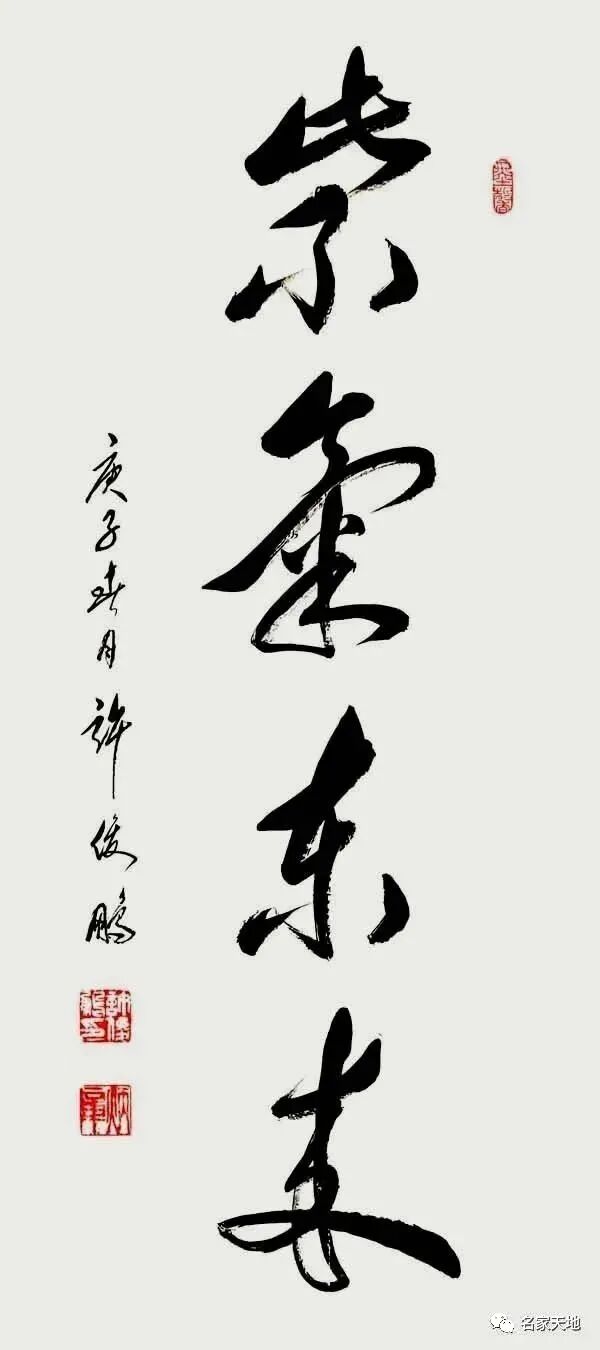 紫氣东来
庚子春月许俊鹏
名家天地